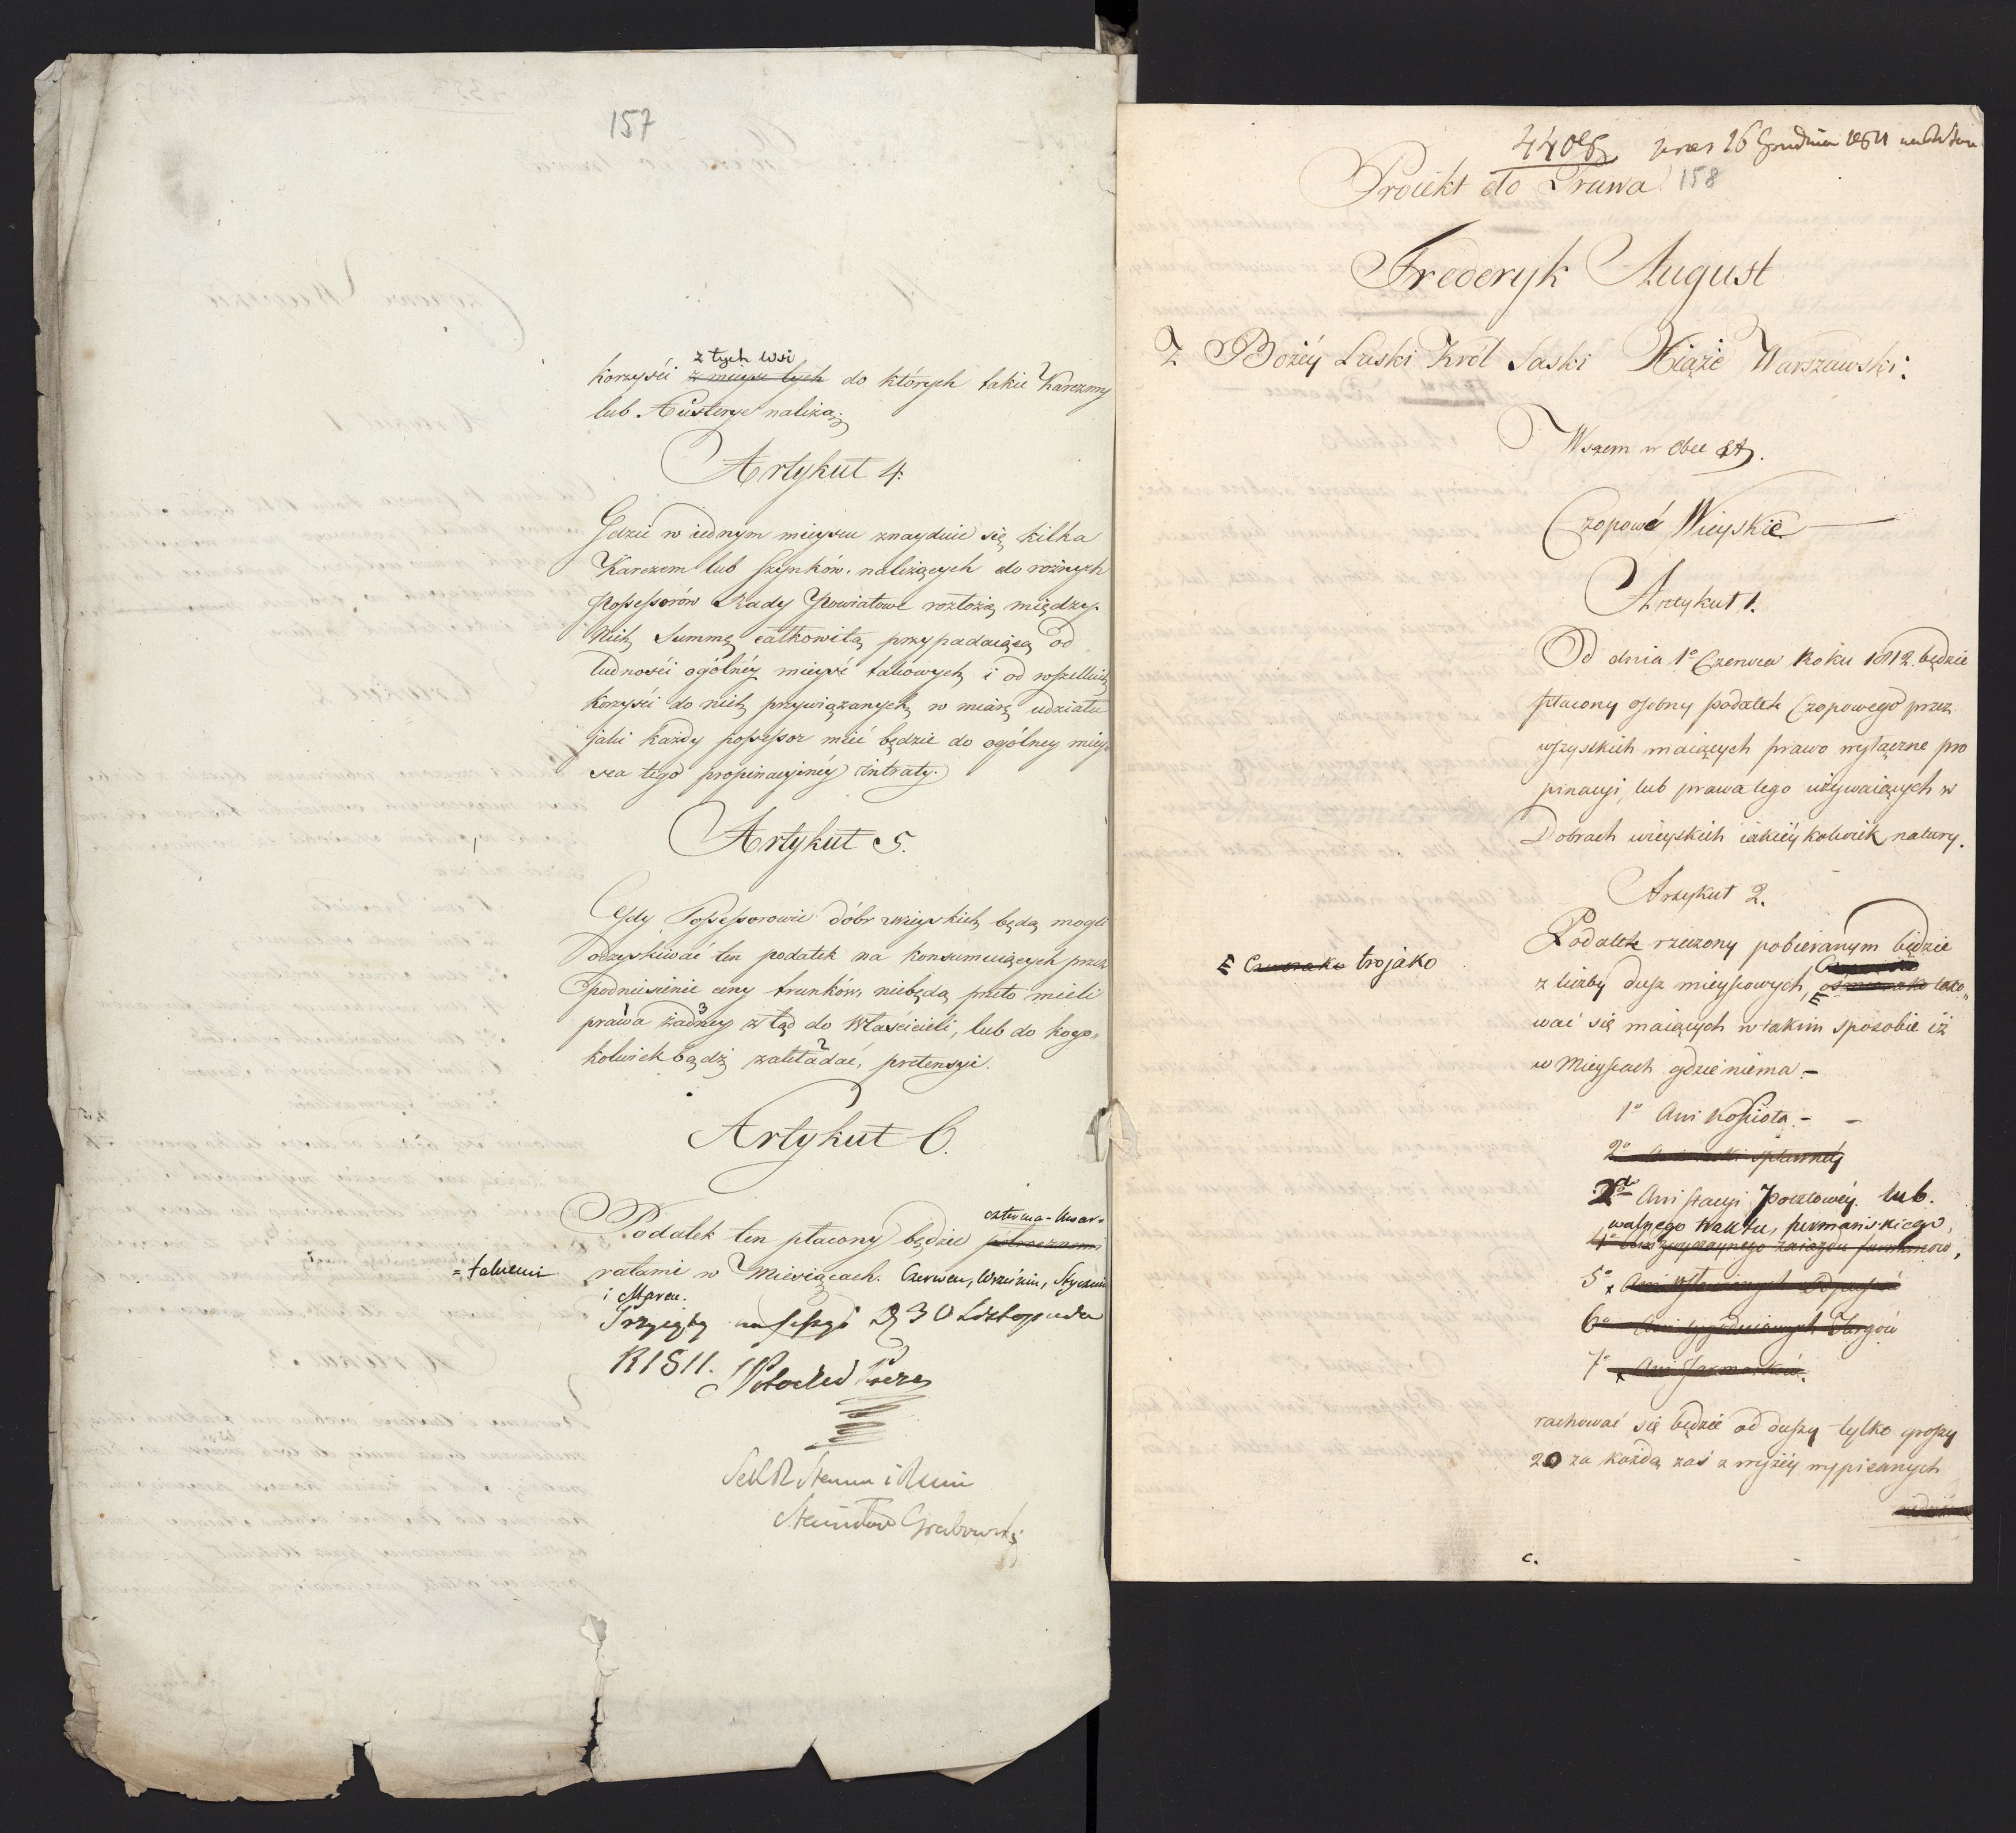 157
z tych wsi
korzyści z mieysc tych do których takie Karczmy
lub Austerye należą.
Artykuł 4.
Gdzie w iednym mieyscu znayduie się kilka
Karczem lub szynków, należących do rożnych
Possessorów Rady Powiatowe rozłożą między
Nich Summę całkowitą przypadaiącą od
ludności ogólney mieysc takowych i od wszelkich
korzyści do nich przywiązanych w miarę udziału
jaki każdy possessor mieć będzie do ogólney miey
sca tego propinacyiney intraty.
Artykuł 5.
Gdy Possessorowie dóbr wieyskich będą mogli
odzyskiwać ten podatek na konsumuiących przez
podniesienie ceny trunków, niebędą przeto mieli
1 3
prawa żadney ztąd do Właścicieli, lub do kogo-
2
kolwiek bądź zakładać, pretensyi.
Artykuł 6.
czterma-kwar-
Podatek ten płacony będzie półrocznemi
=talnemi ratami w Miesiącach. Czerwcu, Wrześniu, Styczniu
i Marcu.
Przyięty na sessyi D 30 Listopada
R 1811. Potocki Prezes
Sekr Stanu i Rady
Stanisław Grabowski
440
przez 16 Grudnia 1811
Proiekt do Prawa. 158
Frederyk August
Z Bożey Łaski Król Saski Xiąże Warszawski.
Wszem w Obec &.
Czopowe Wieyskie
Artykuł 1.
Od dnia 1o Czerwca Roku 1812 będzie
płacony osobny podatek Czopowego przez
wszystkich maiących prawo wyłączne pro
pinacyi, lub prawa tego używaiących w
Dobrach wieyskich iakieykolwiek natury.
Artykuł 2.
Podatek rzeczony pobieranym będzie
E Czworako trojako
z liczby dusz mieyscowych, ośmiorako rozo-
wać się maiących w takim sposobie iż
w Mieyscach gdzie niema -
1o Ani Kościoła -
2o Ani rzeki spławney
2o Ani stacyi Pocztowey. lub.
walnego traktu, furmańskiego,
4o Ani zwyczaynego zaiazdu furmanów,
5o Ani Odpustó
6o Ani tygodniowych Targów
7o Ani Jarmarków.
rachować się będzie od duszy tylko groszy
20 za każdą zaś z wyżey wypisanych
c.